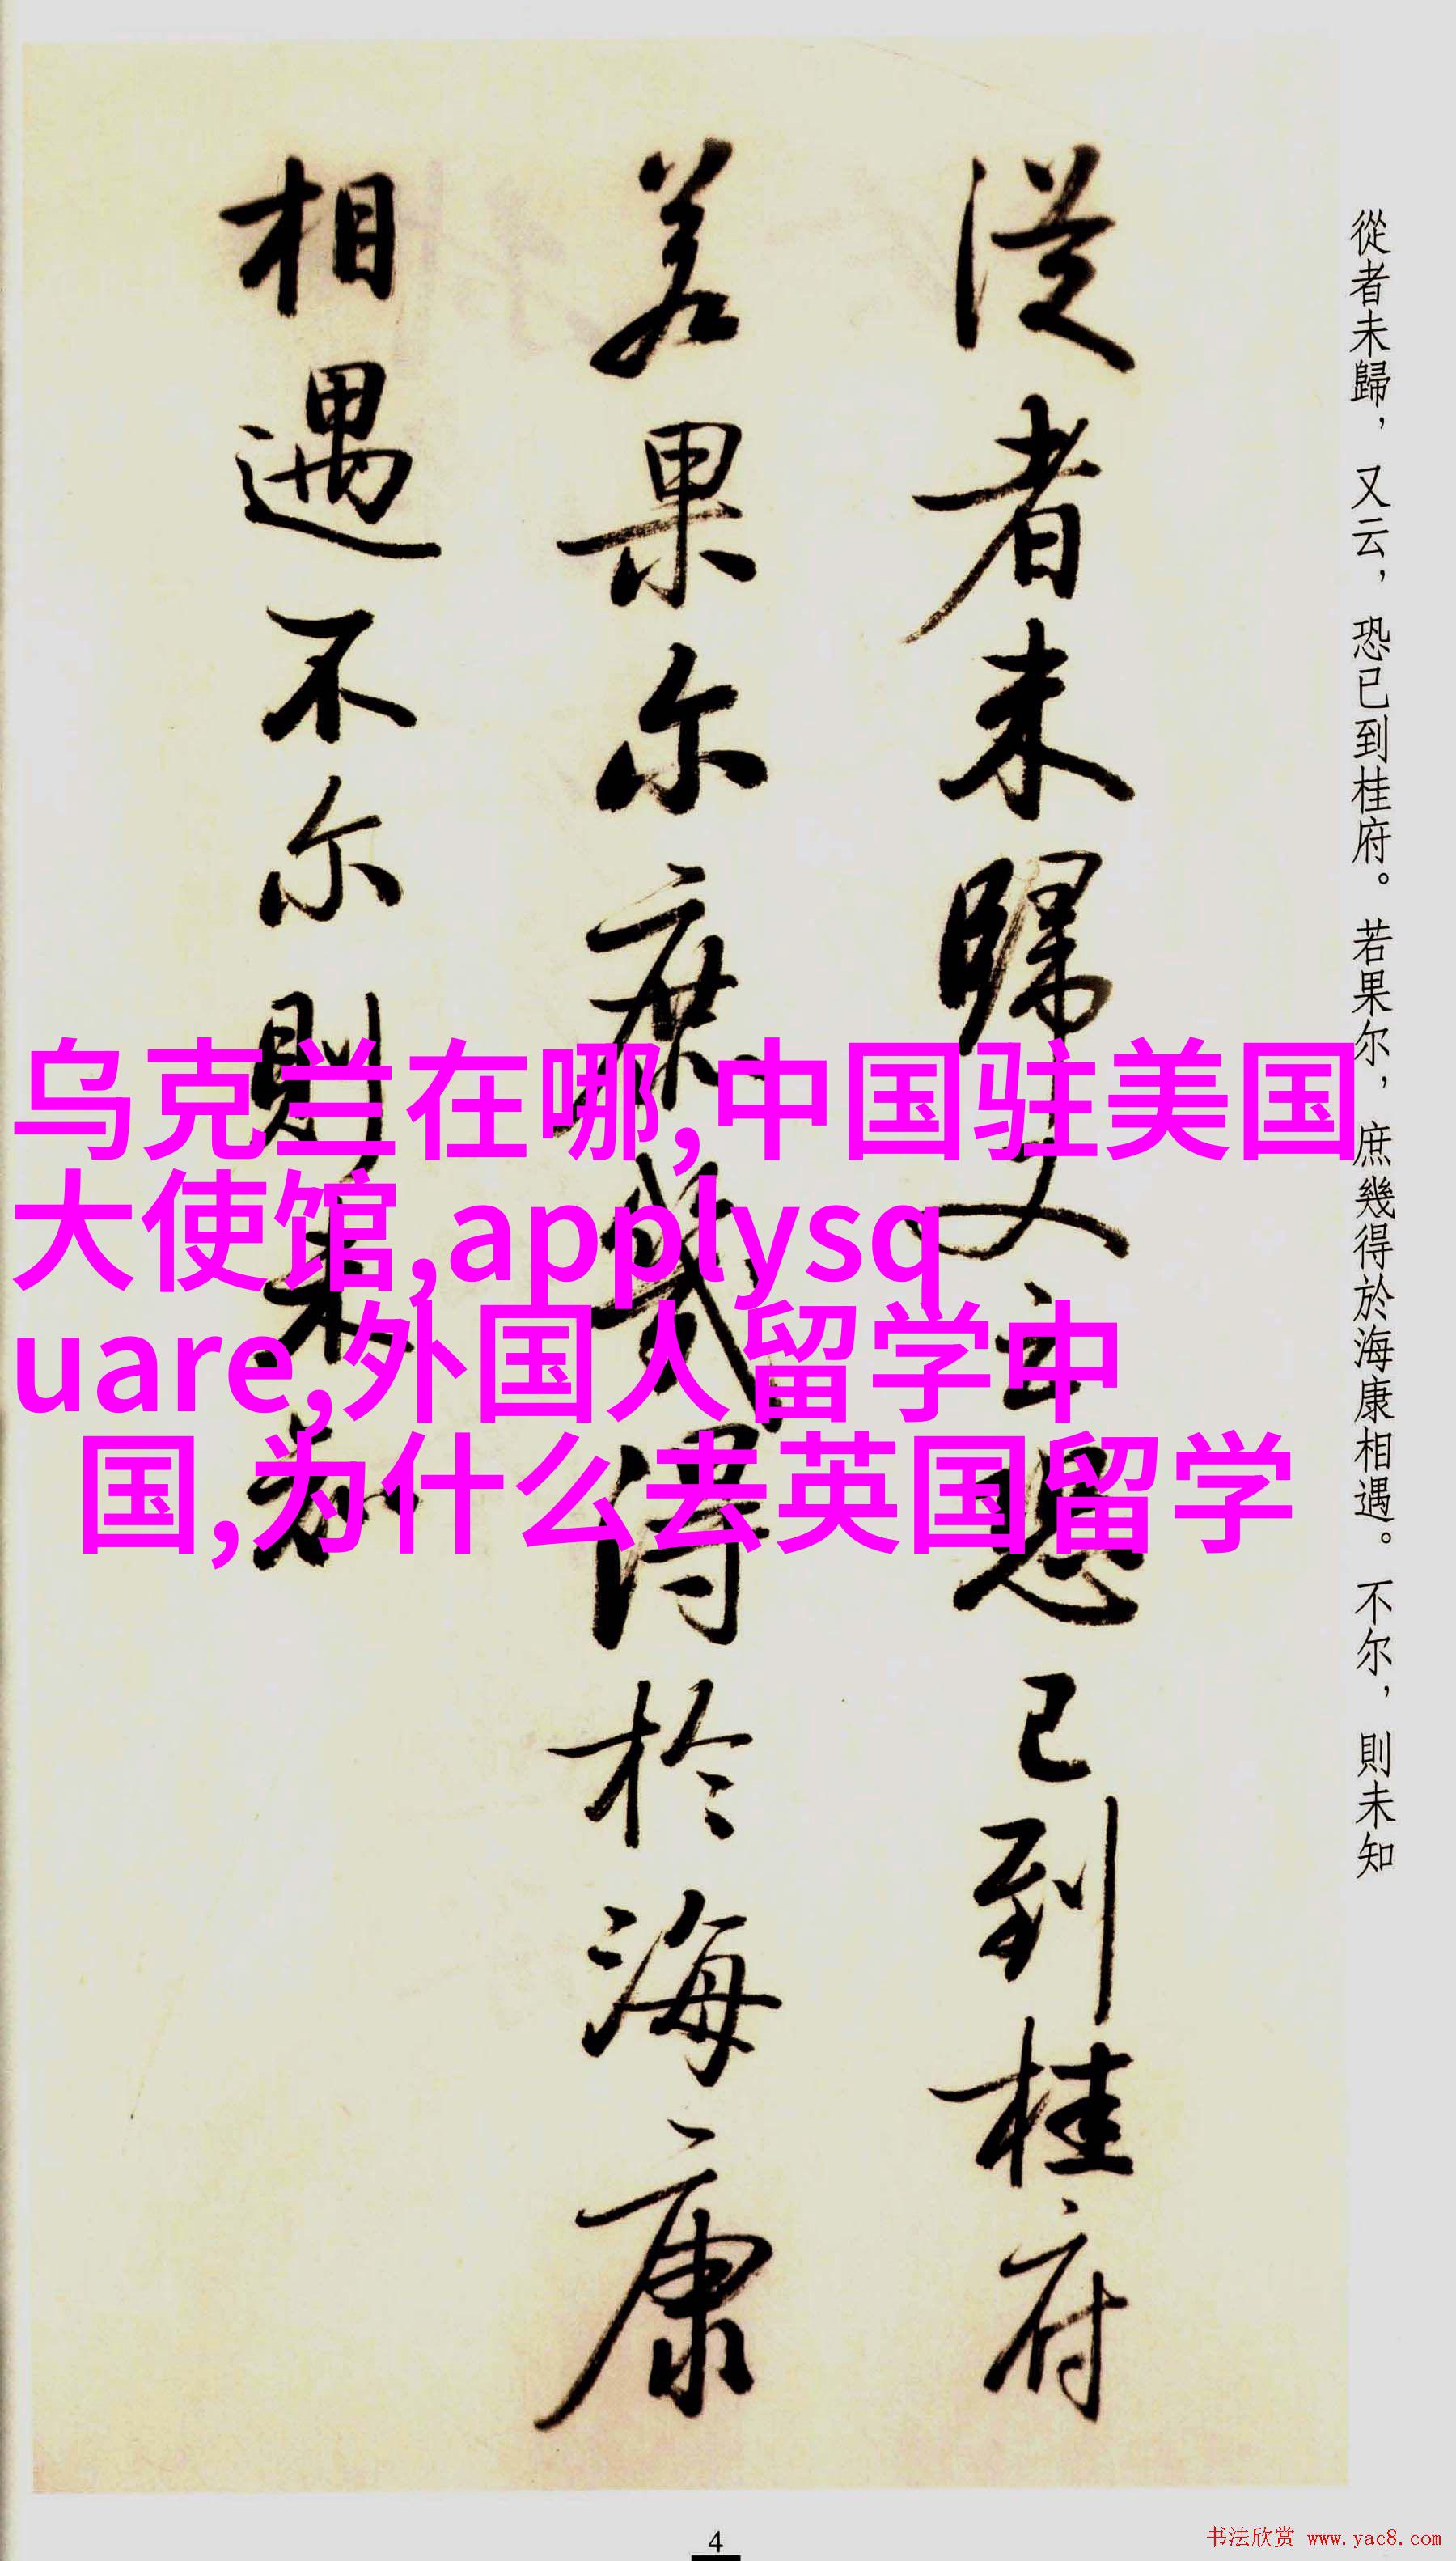 從者未歸，又云，恐已到桂府。若果尔，庶幾得於海康相遇。不尔，則未知
从者未歸又云恐已到桂府
若果尔庶幾得於海康
相遇不尔則未知
乌克兰在哪,中国驻美国
大使馆,applysq
uare,外国人留学中
国,为什么去英国留学
4
书法欣赏 www.yac8.com